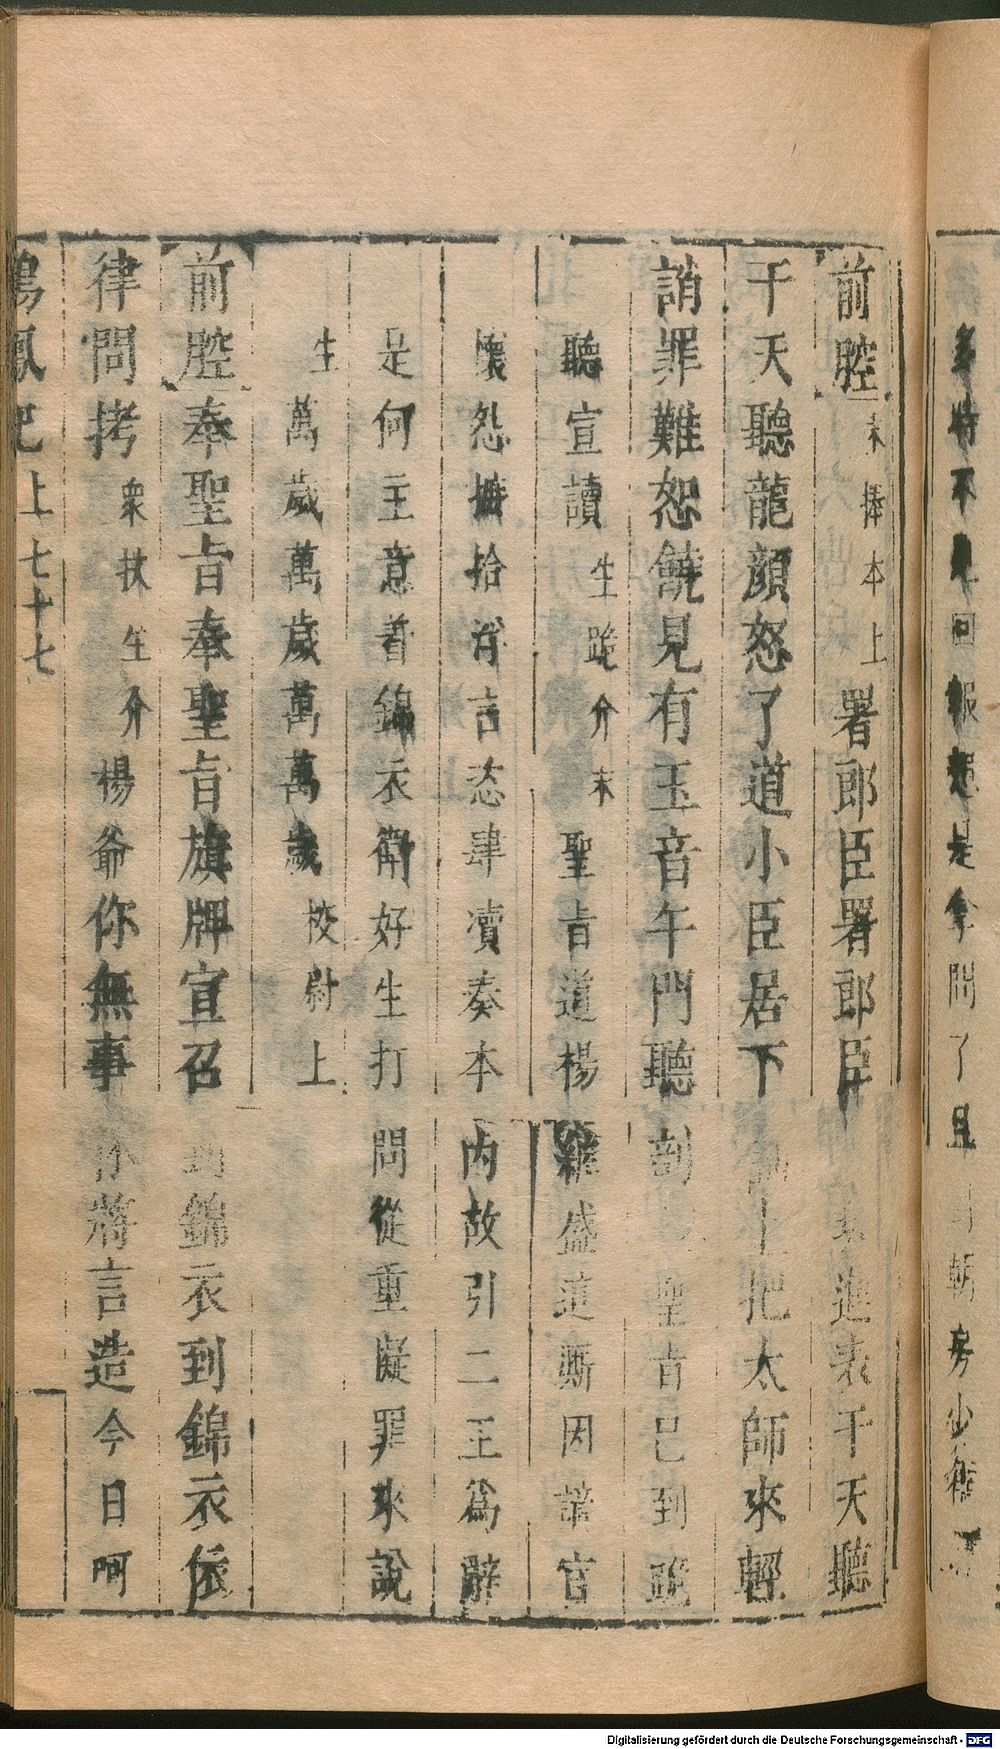 多時不見回報想是拿問了且 朝房少待
前腔 末捧本上 署郎臣署郎臣 進表干天聽
干天聽龍顏怒了道小臣居下 上把太師來輕
誚罪難恕饒見有玉音午門聽剖 聖旨已到跪
聽宣讀 生跪介 末 聖旨道楊繼盛這廝因謫官
懷怨摭拾浮言恣肆瀆奏本內故引二王為辭
是何主意着錦衣衛好生打問從重擬罪來說
生 萬歲萬歲萬萬歲 校尉上
前腔 奉聖旨奉聖旨旗牌宣召 到錦衣到錦衣依
律問拷 衆扶生介 楊爺你無事 將言造今日啊
鳴鳳記 上 七十七
Digitalisierung gefördert durch die Deutsche Forschungsgemeinschaft - DFG